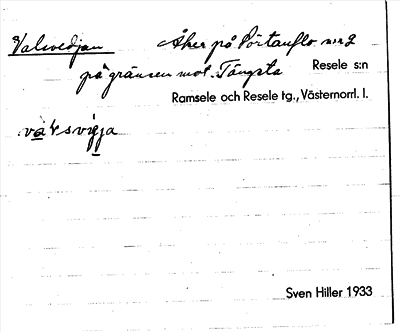 Valsvedjan Åker på Sörtanflo nr 2
på gränsen mot Tängsta Resele s:n
Ramsele och Resele tg., Västernorrl. l.
va ks vigja
Sven Hiller 1933